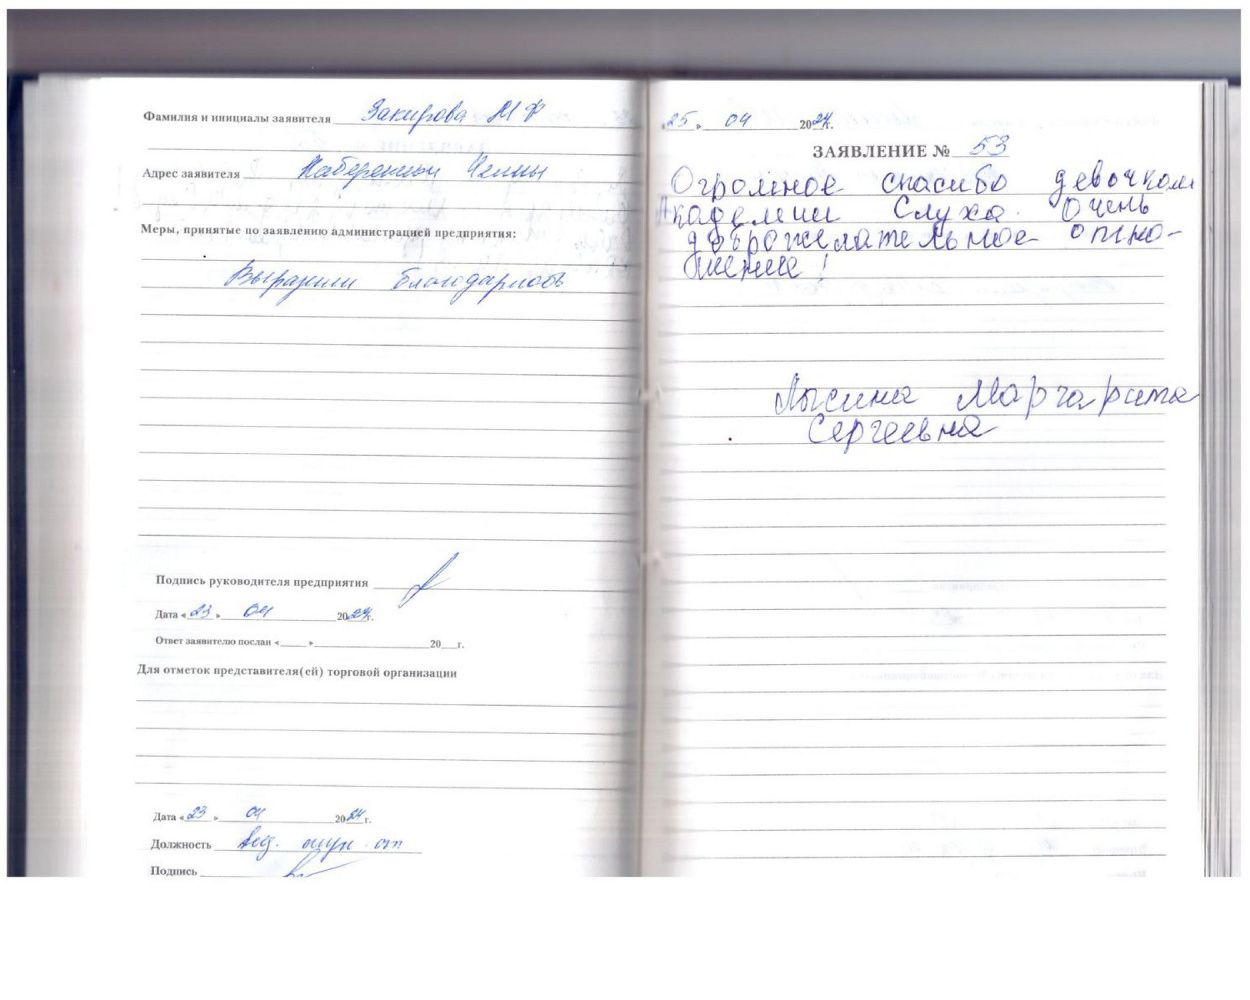 Фамилия и инициалы заявителя Закирова М Ф
Адрес заявителя Набережные Челны
Меры, принятые по заявлению администрацией предприятия:
Выразили благодарность
Подпись руководителя предприятия
Дата «23» 04 2024г.
Ответ заявителю послан «____» 20__г.
Для отметок представителя(ей) торговой организации
Дата «23» 04 2024г.
Должность вед.
Подпись
25» 04 2024г.
ЗАЯВЛЕНИЕ № 53
Огромное спасибо девочкам
Академии Слуха. Очень
доброжелательное отно-
шение!
Лысина Маргарита
Сергеевна